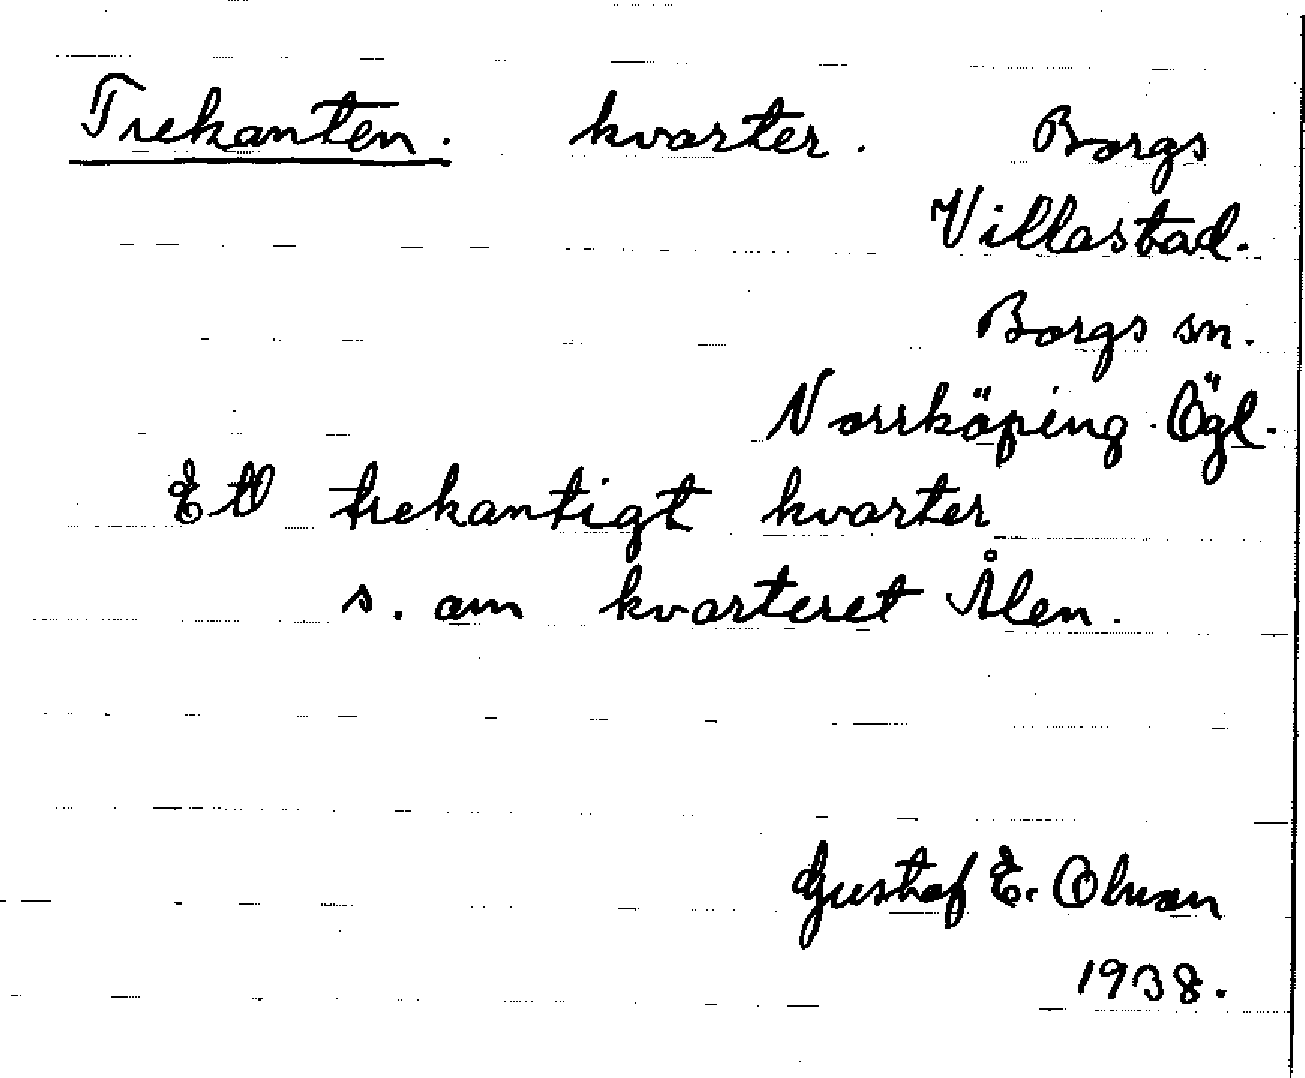 Trekanten. kvarter. Borgs
Villastad.
Borgs sn.
Norrköping Ögl.
Ett trekantigt kvarter
s. om kvarteret Ålen.
Gustaf E. Olsson
1938.